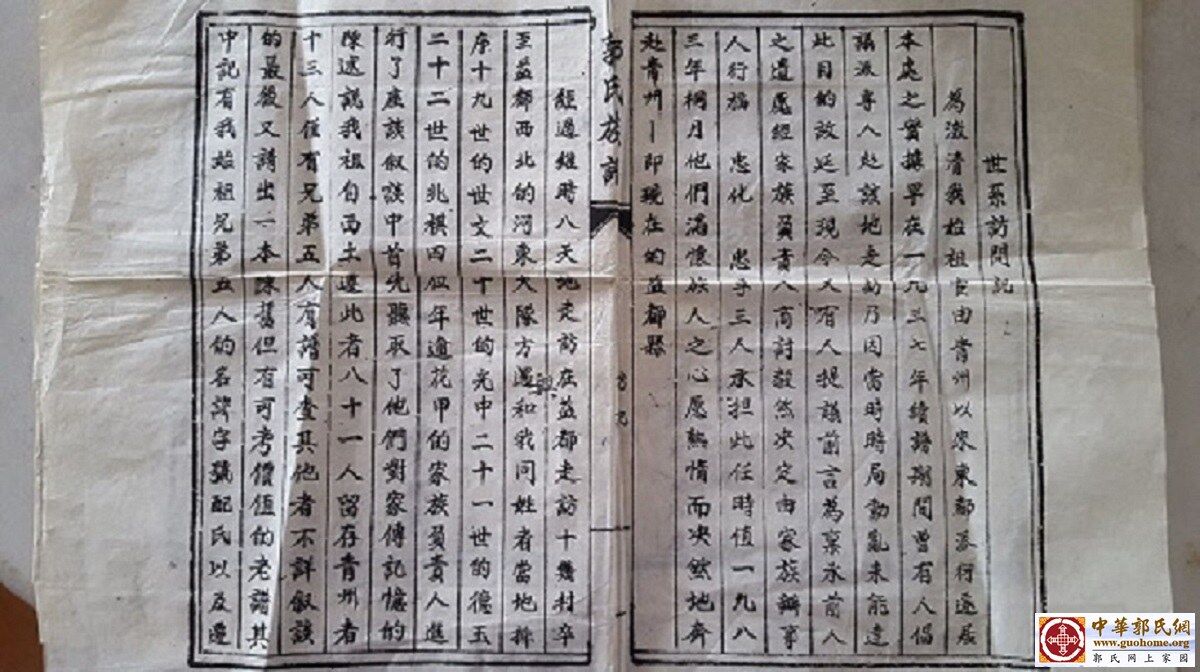 世系訪問記
為澈清我始祖由青州以來東行遂居
本處之實據早在一九三七年續譜期間曾有人倡
議派專人赴該地走訪乃因當時時局動亂未能達
此目的故延至現今又有人提議前言為稟承前人
之遺愿經家族負責人商討毅然决定由家族辦事
人行 忠化 忠孚三人承担此任時值一九八
三年桐月他們滿懷族人之心愿熱情而决然地奔
赴青州—即現在的益都縣
郭氏族譜
訪
一
經過維時八天地走訪在益都走訪十幾村卒
至益都西北的河東大隊方遇和我同姓者當地排
序十九世的世文二十世的光中二十一世的德玉
二十二世的兆棋四位年逾花甲的家族負責人進
行了座談叙談中首先聽取了他們對家傳記憶的
陳述説我祖自西土遷此者八十一人留存青州者
十三人僅有兄弟五人有譜可查其他者不詳叙談
的最後又請出一本舊但有可考價值的老譜其
中記有我始祖兄弟五人的名諱字號配氏以及遷
中華郭氏網
www.guohome.org
郭氏网上家园